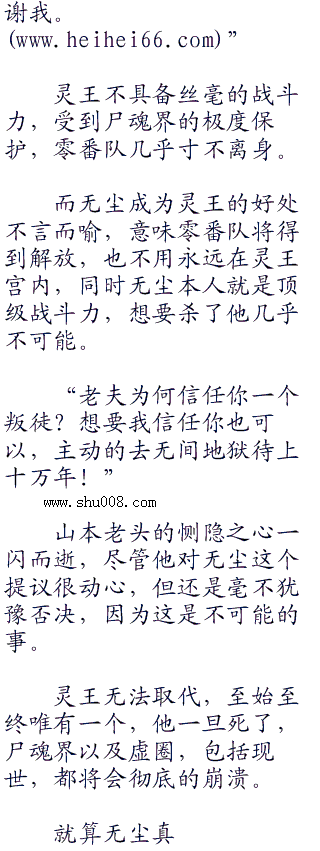 谢我。
(www.heihei66.com)”
灵王不具备丝毫的战斗
力，受到尸魂界的极度保
护，零番队几乎寸不离身。
而无尘成为灵王的好处
不言而喻，意味零番队将得
到解放，也不用永远在灵王
宫内，同时无尘本人就是顶
级战斗力，想要杀了他几乎
不可能。
“老夫为何信任你一个
叛徒？想要我信任你也可
以，主动的去无间地狱待上
十万年！”
www.shu008.com
山本老头的恻隐之心一
闪而逝，尽管他对无尘这个
提议很动心，但还是毫不犹
豫否决，因为这是不可能的
事。
灵王无法取代，至始至
终唯有一个，他一旦死了，
尸魂界以及虚圈，包括现
世，都将会彻底的崩溃。
就算无尘真